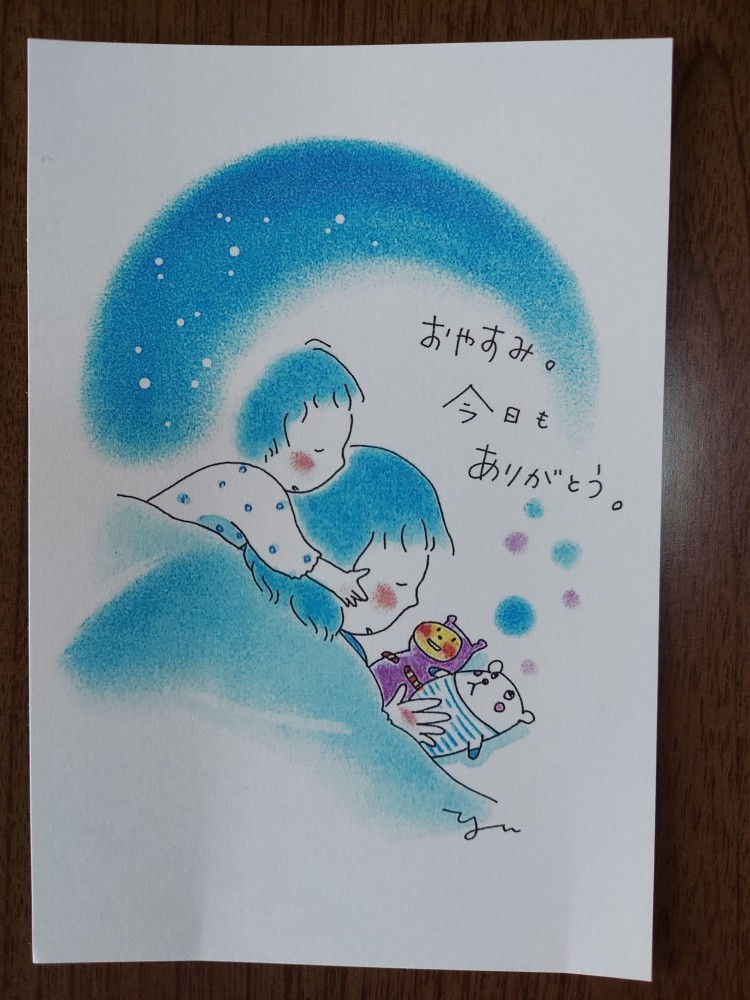 おやすみ。
今日も
ありがとう。